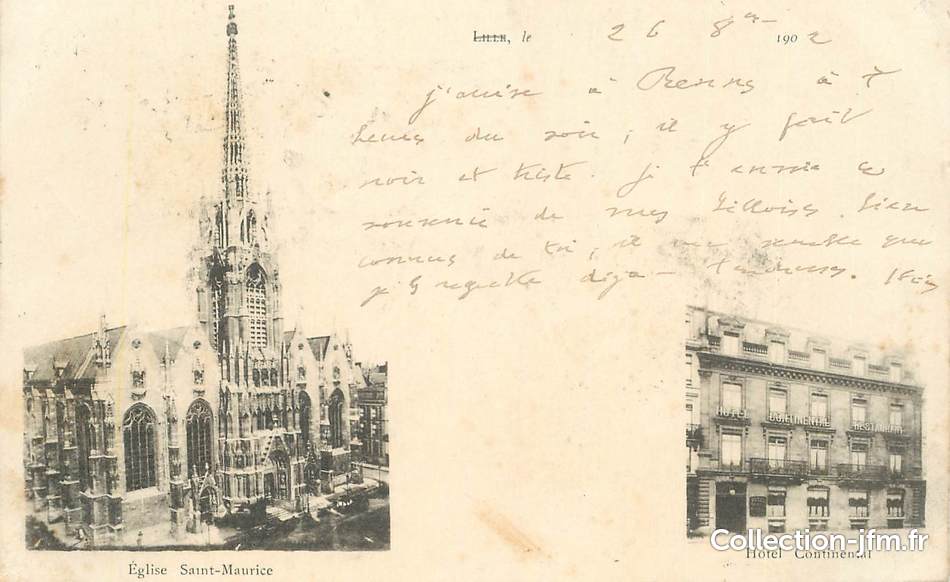 LILLE, le 26 8bre 1902
j'arrive à Rennes à 7
heures du soir, il y fait
noir et triste. Je t'envoie ce
souvenir de mes Lillois, bien
connus de toi, il me semble que
je les regrette déjà — tendresses.
HOTEL CONTINENTAL RESTAURANT
Église Saint-Maurice
Hôtel Continental
Collection-jfm.fr